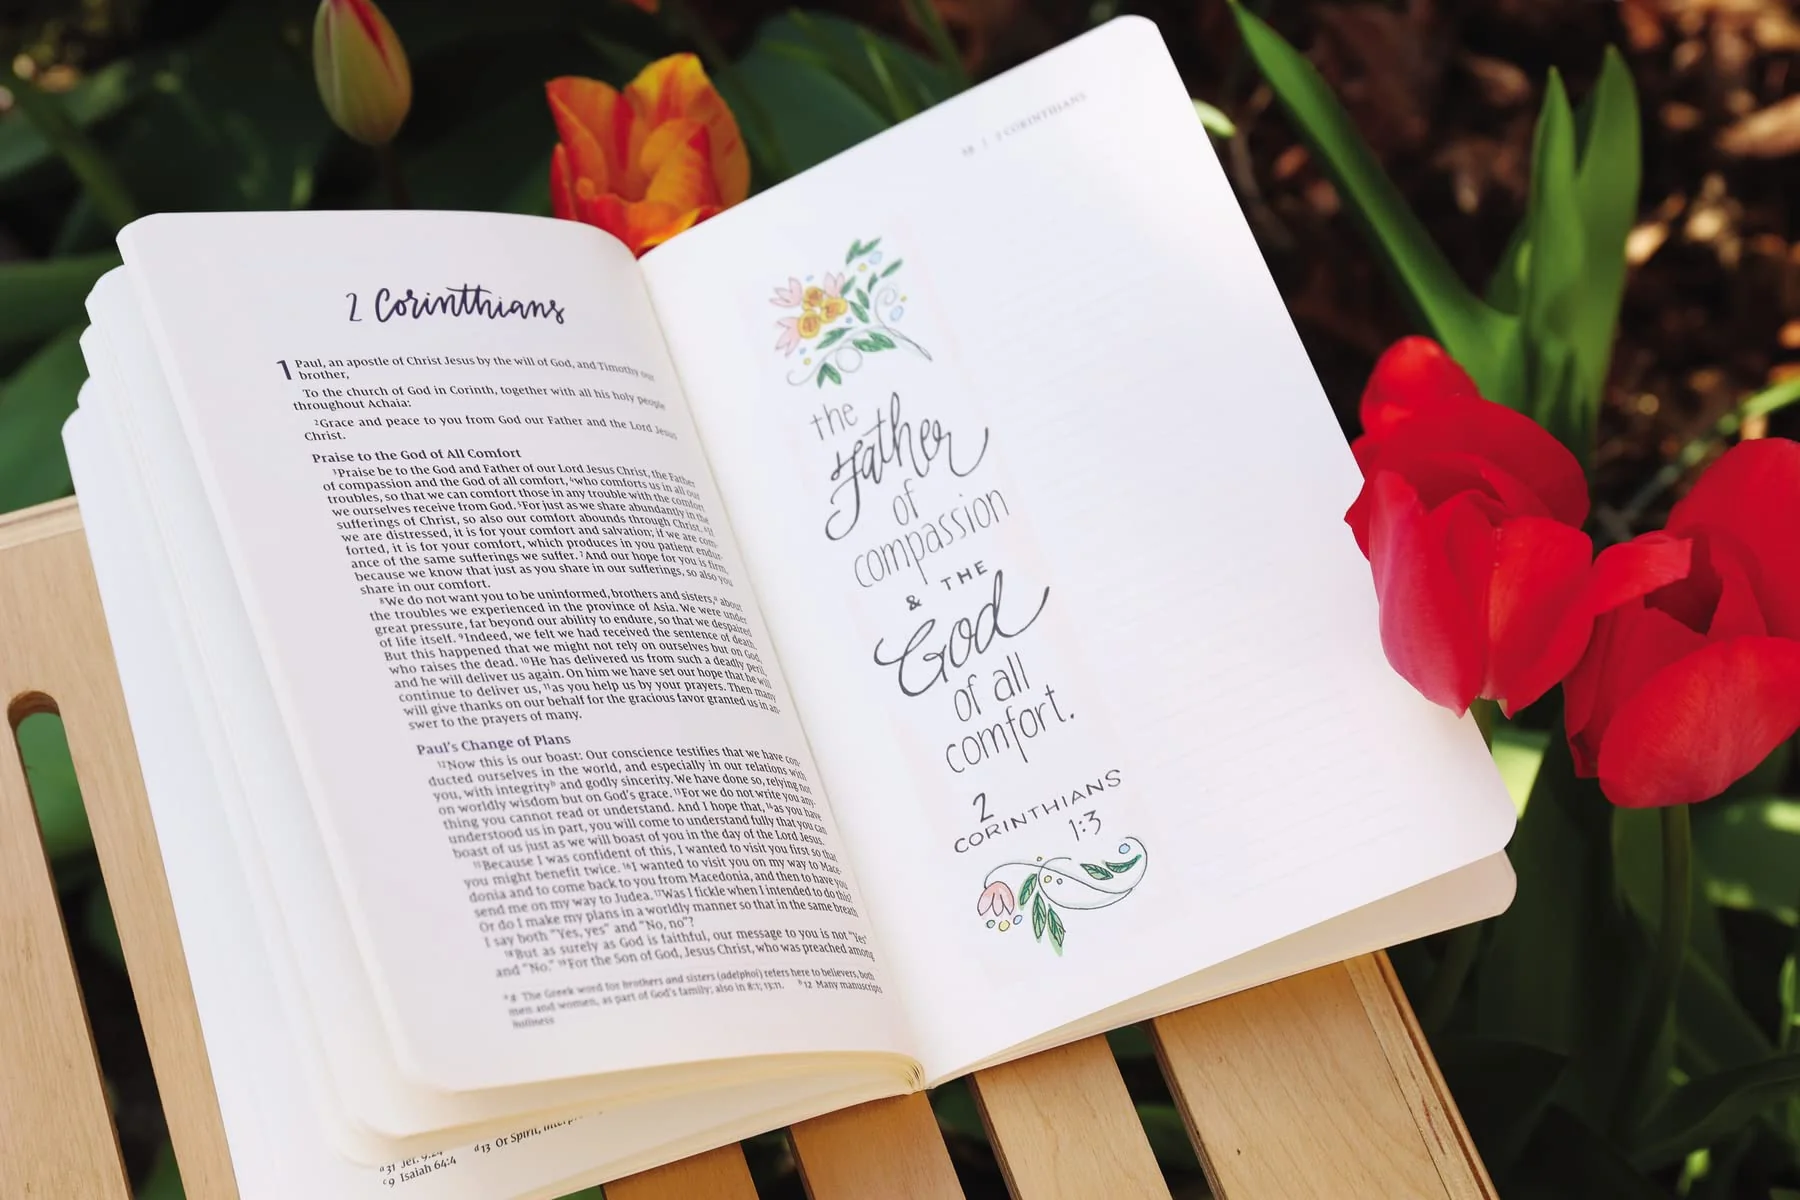 2 Corinthians
1 Paul, an apostle of Christ Jesus by the will of God, and Timothy our
brother,
To the church of God in Corinth, together with all his holy people
throughout Achaia:
2Grace and peace to you from God our Father and the Lord Jesus
Christ.
Praise to the God of All Comfort
3Praise be to the God and Father of our Lord Jesus Christ, the Father
of compassion and the God of all comfort, 4who comforts us in all our
troubles, so that we can comfort those in any trouble with the comfort
we ourselves receive from God. 5For just as we share abundantly in the
sufferings of Christ, so also our comfort abounds through Christ. 6If
we are distressed, it is for your comfort and salvation; if we are com-
forted, it is for your comfort, which produces in you patient endur-
ance of the same sufferings we suffer. 7And our hope for you is firm,
because we know that just as you share in our sufferings, so also you
share in our comfort.
8We do not want you to be uninformed, brothers and sisters,a about
the troubles we experienced in the province of Asia. We were under
great pressure, far beyond our ability to endure, so that we despaired
of life itself. 9Indeed, we felt we had received the sentence of death.
But this happened that we might not rely on ourselves but on God,
who raises the dead. 10He has delivered us from such a deadly peril,
and he will deliver us again. On him we have set our hope that he will
continue to deliver us, 11as you help us by your prayers. Then many
will give thanks on our behalf for the gracious favor granted us in an-
swer to the prayers of many.
Paul's Change of Plans
12Now this is our boast: Our conscience testifies that we have con-
ducted ourselves in the world, and especially in our relations with
you, with integrityb and godly sincerity. We have done so, relying not
on worldly wisdom but on God's grace. 13For we do not write you any-
thing you cannot read or understand. And I hope that, 14as you have
understood us in part, you will come to understand fully that you can
boast of us just as we will boast of you in the day of the Lord Jesus.
15Because I was confident of this, I wanted to visit you first so that
you might benefit twice. 16I wanted to visit you on my way to Mace-
donia and to come back to you from Macedonia, and then to have you
send me on my way to Judea. 17Was I fickle when I intended to do this?
Or do I make my plans in a worldly manner so that in the same breath
I say both "Yes, yes" and "No, no"?
18But as surely as God is faithful, our message to you is not "Yes"
and "No." 19For the Son of God, Jesus Christ, who was preached among
a 8 The Greek word for brothers and sisters (adelphoi) refers here to believers, both
men and women, as part of God's family; also in 8:1; 13:11. b 12 Many manuscripts
holiness
a 31 Jer. 9:24
d 13 Or Spirit,
c 9 Isaiah 64:4
| 2 CORINTHIANS
the
Father
of
compassion
& THE
God
of all
comfort.
2
CORINTHIANS
1:3